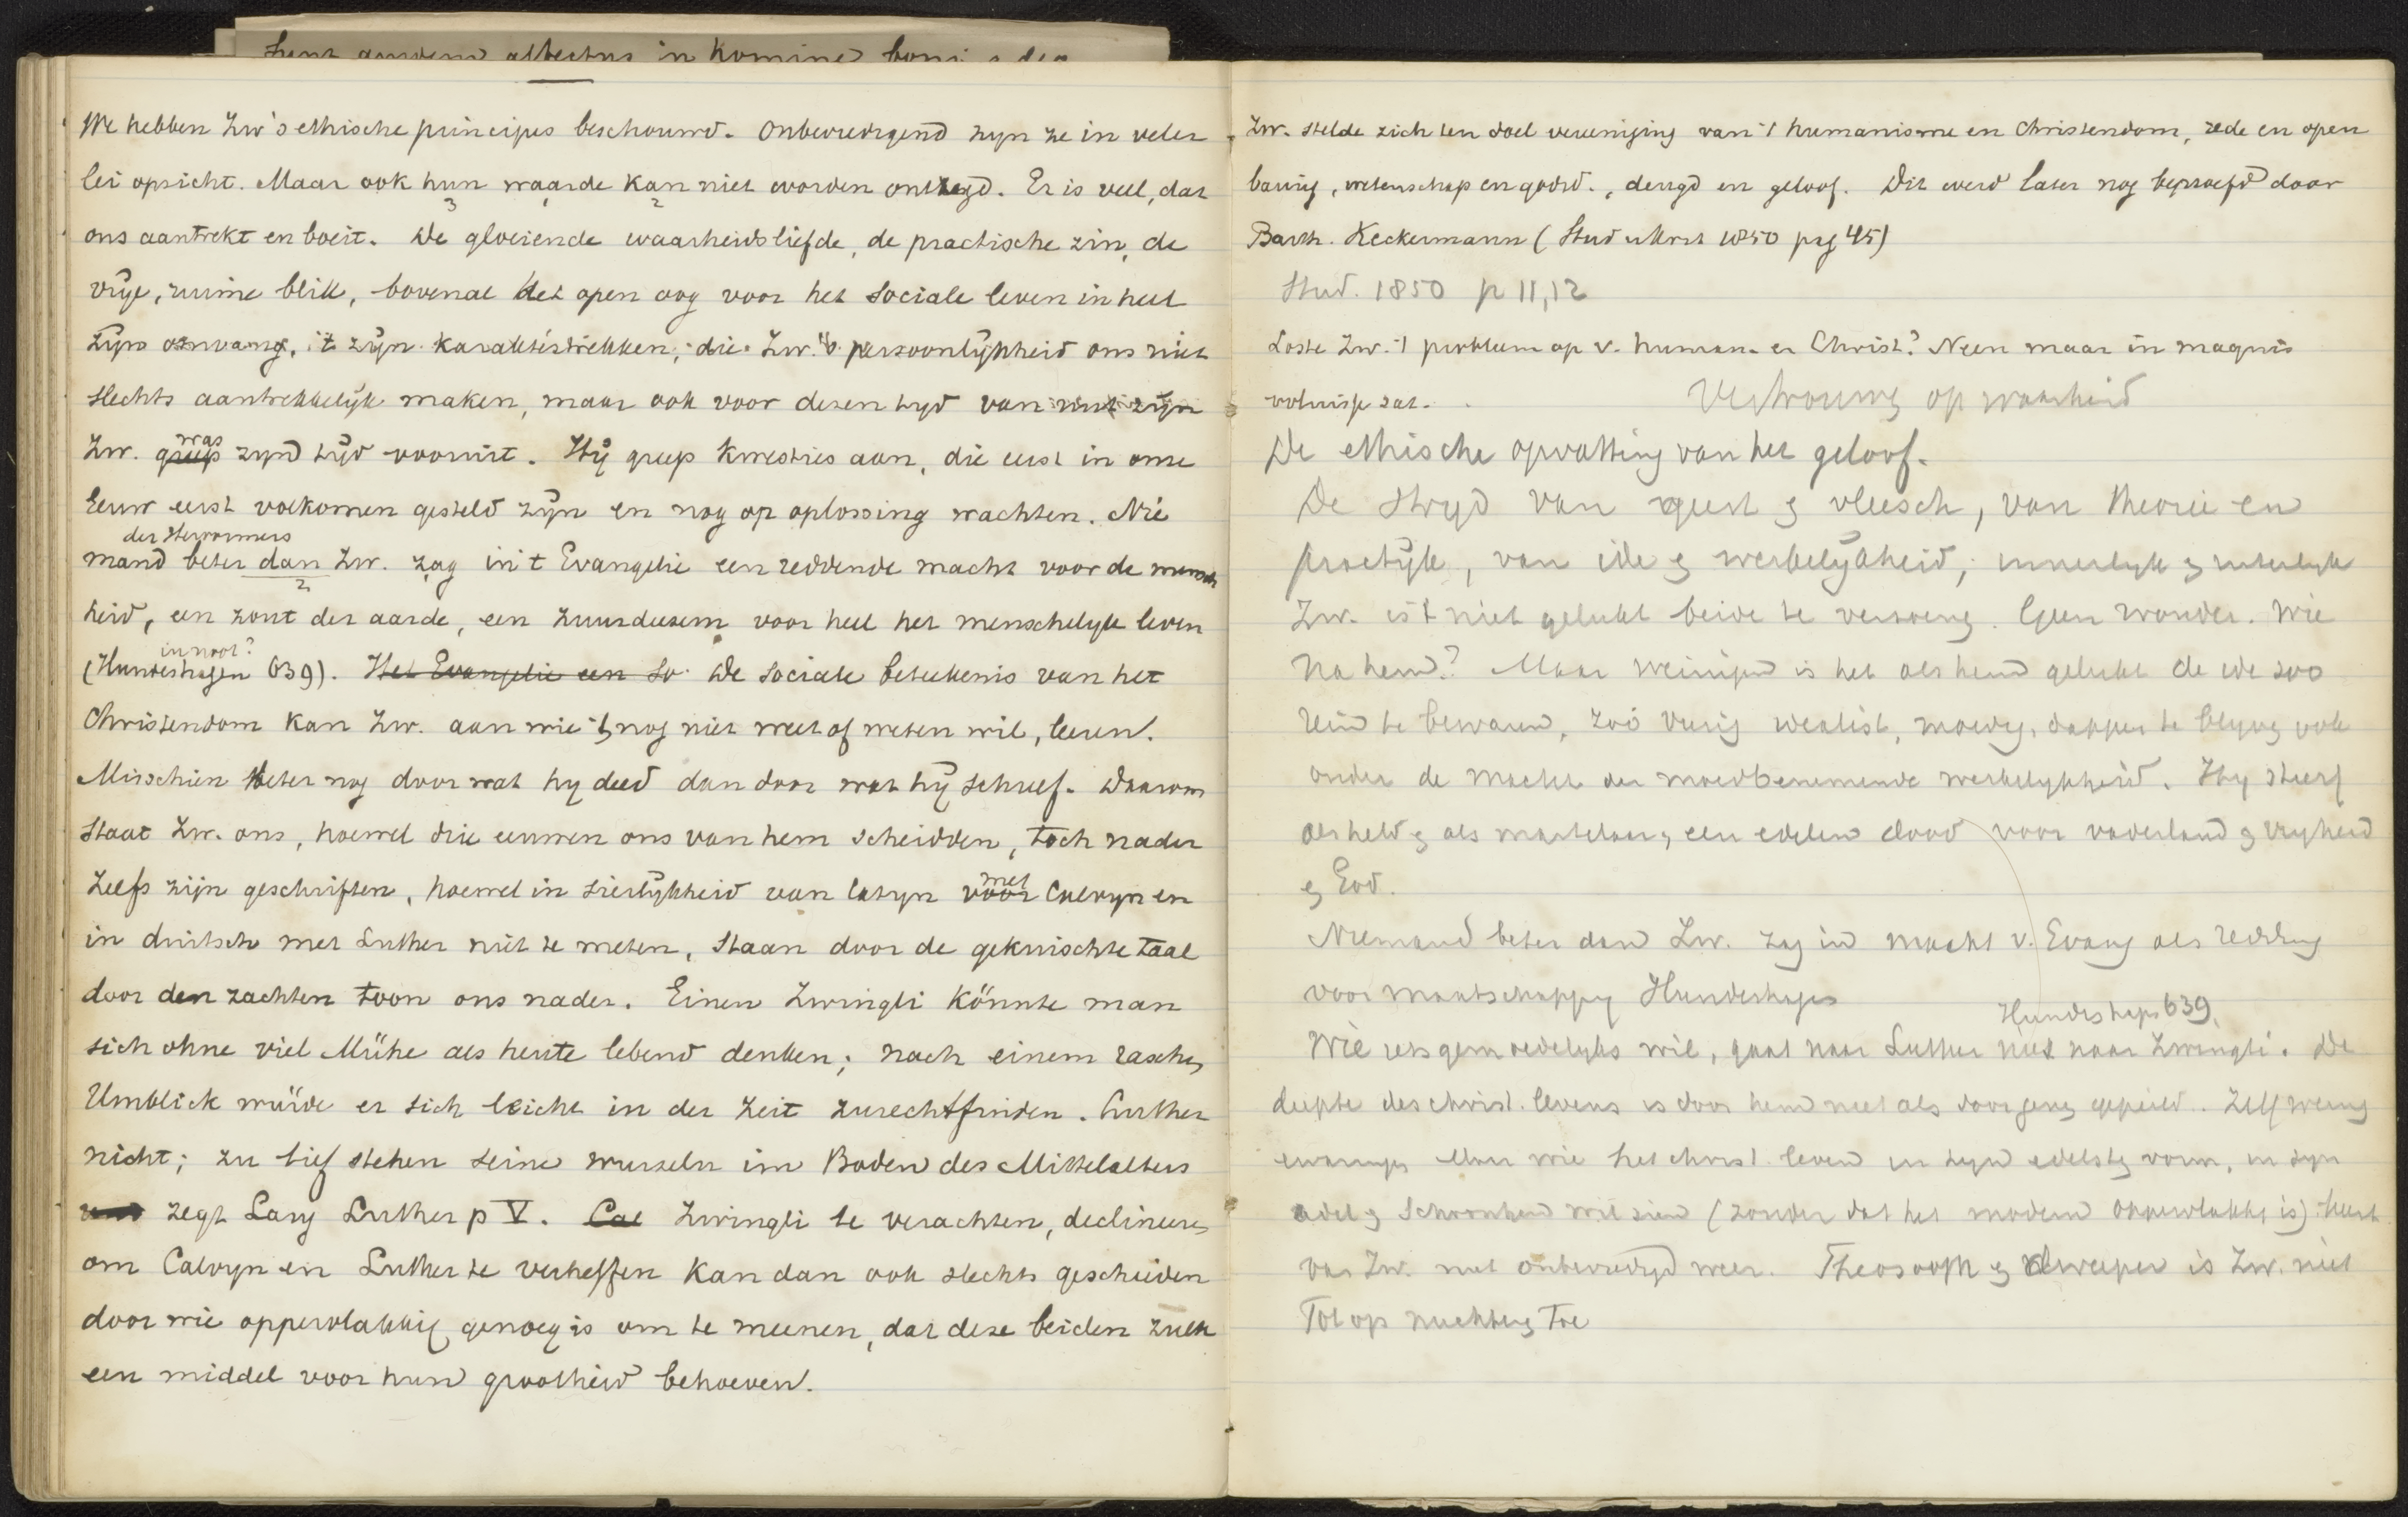 We hebben Zw's ethische principes beschouwd. Onbevredigend zyn ze in veler
lei opzicht. Maar ook hun waarde kan niet worden ontzegd. Er is veel, dat
3 2
ons aantrekt en boeit. De gloeiende waarheidsliefde, de practische zin, de
vrije, ruime blik, bovenal het open oog voor het sociale leven in heel
zijn omvang, 't zijn karaktertrekken, die Zw.'s persoonlijkheid ons niet
slechts aantrekkelijk maken, maar ook voor dezen tyd van nut zijn
was
Zw. greep zyn tijd vooruit. Hij greep kwesties aan, die eerst in onze
Eeuw eerst volkomen gesteld zijn en nog op oplossing wachten. Nie
der Hervormers
mand beter dan Zw. zag in 't Evangelie een reddende macht voor de mensch
2
heid, een zout der aarde, een zuurdeesem voor heel het menschelyk leven
in noot?
(Hundeshagen 639). Het Evangelie een so De sociale beteekenis van het
Christendom kan Zw. aan wie 't nog niet weet of weten wil, leeren.
Misschien beter nog door wat hy deed dan door wat hij schreef. Daarom
staat Zw. ons, hoewel drie eeuwen ons van hem scheidden, toch nader
Zelfs zijn geschriften, hoewel in sierlijkheid van latyn
met
voor Calvyn en
in duitsch met Luther niet te meten, staan door de gekuischte taal
door den zachten toon ons nader. Einen Zwingli könnte man
sich ohne viel Mühe als heute lebend denken; nach einem raschen
Umblick würde er sich leicht in der Zeit zurechtfinden. Luther
nicht; zu tief stehen seine wurzeln im Boden des Mittelalters
zegt Lang Luther p V. Cal Zwingli te verachten, declineeren
om Calvyn en Luther te verheffen kan dan ook slechts geschieden
door wie oppervlakkig genoeg is om te meenen, dat deze beiden zulk
een middel voor hun grootheid behoeven.
Zw. stelde zich ten doel vereeniging van 't humanisme en Christendom, rede en open
baring, wetenschap en godsd., deugd en geloof. Dit werd later nog beproefd door
Barth. Keckermann (Stud u Krit 1850 pag 45)
Stud. 1850 p 11, 12
Loste Zw. 't probleem op v. human. en Christ.? Neen maar in magnis
voluisse sat.
Vertrouwen op waarheid
De ethische opvatting van het geloof.
De stryd van geest en vleesch, van theorie en
practijk, van idee en werkelijkheid, innerlyk en uiterlyk
Zw. is 't niet gelukt beide te verzoenen. Geen wonder. Wie
na hem? Maar weinigen is het als hem gelukt de idee zoo
rein te bewaren, zoo vurig idealist, moedig, dapper te blyven ook
onder de macht der moedbenemende werkelykheid. Hy stierf
als held en als martelaar, een edelen dood voor vaderland en vryheid
en God.
Niemand beter dan Zw. zag in macht v. Evang als redding
voor maatschappy Hundeshagen
Hundeshagen 639.
Wie iets gemoedelyks wil, gaat naar Luther niet naar Zwingli. De
diepte des christ. levens is door hem niet als door gepeild. Zelf weinig
Maar wie het christ. leven in zyn edelste vorm, in zyn
adel en schoonheid wil zien (zonder dat het modern oppervlakkig is) keert
van Zw. niet onbevredigd weer. Theosooph en dweeper is Zw. niet
Tot op nuchtere toe